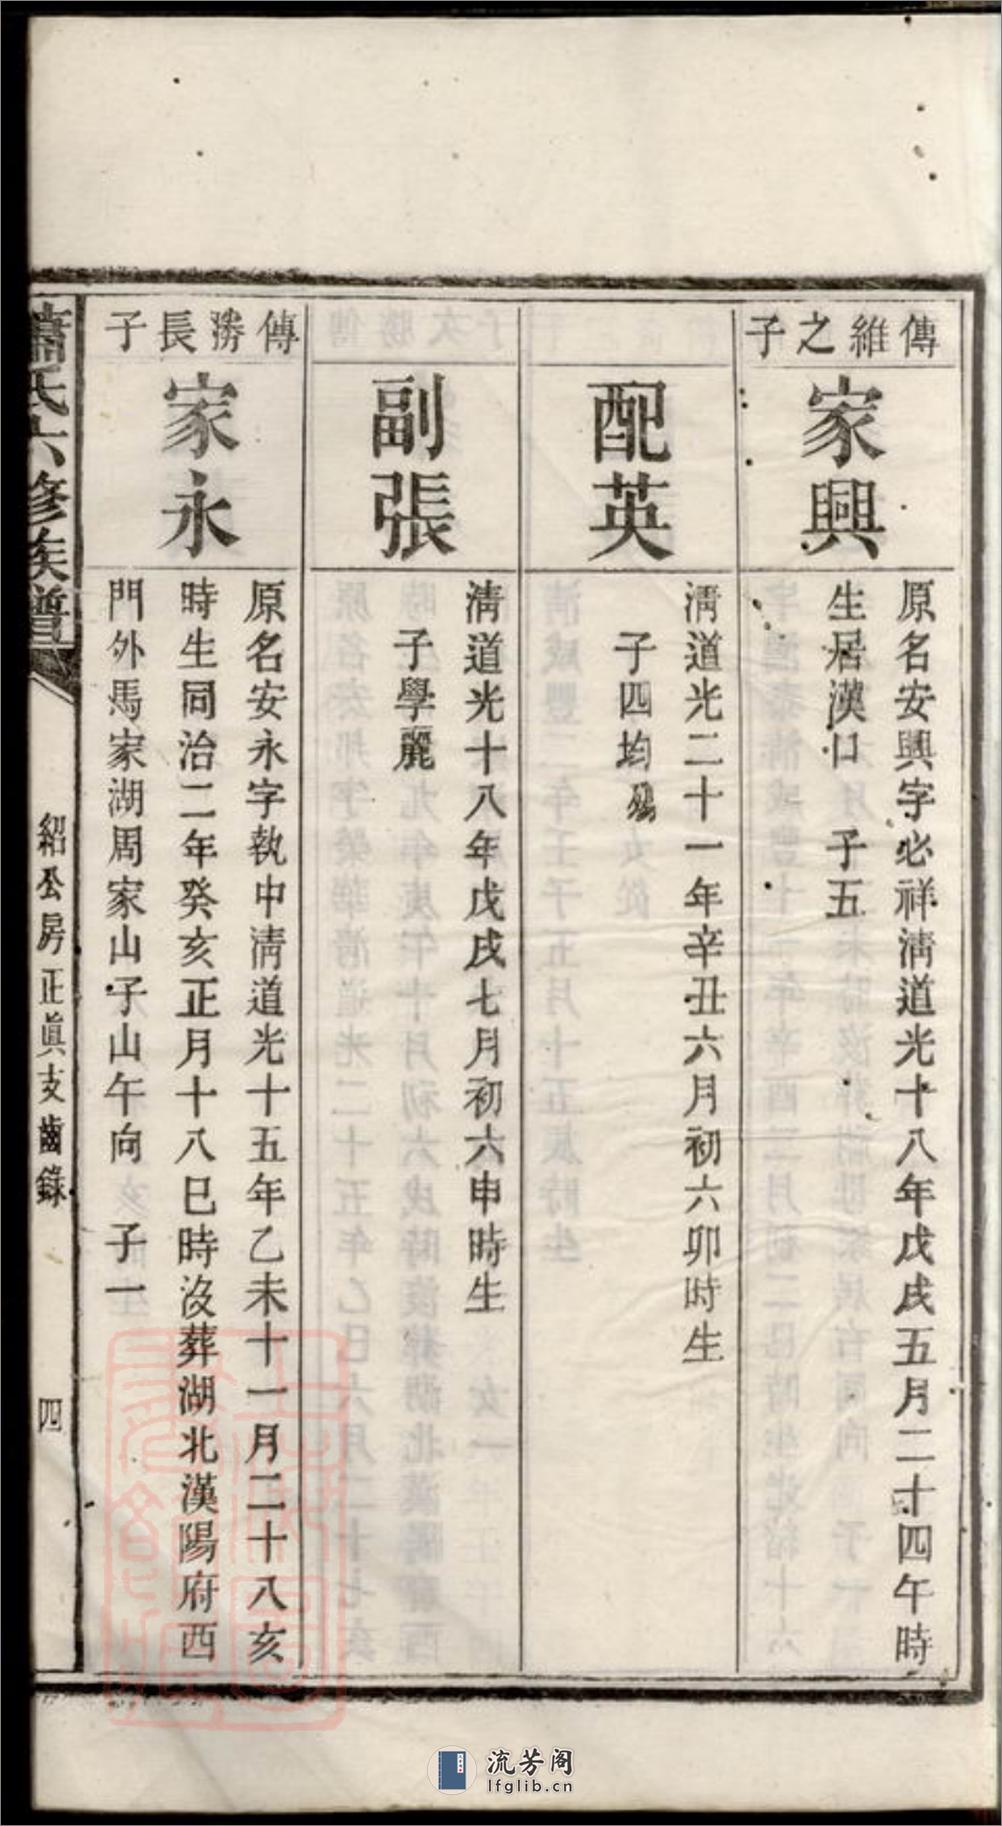 傳維之子
家興
原名安興字必祥淸道光十八年戊戌五月二十四午時
生居漢口　子五
配英
淸道光二十一年辛丑六月初六卯時生
子四均殤
副張
淸道光十八年戊戌七月初六申時生
子學麗
傳勝長子
家永
原名安永字執中淸道光十五年乙未十一月二十八亥
時生同治二年癸亥正月十八巳時沒葬湖北漢陽府西
門外馬家湖周家山子山午向　子一
蕭氏六修族譜
紹公房正眞支齒錄
四
流芳阁
lfglib.cn